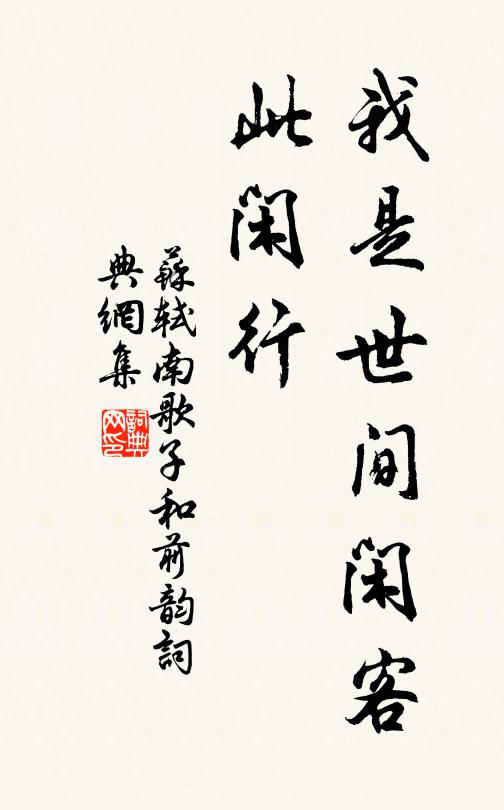 我是世间闲客
此闲行
蘇軾南歌子和前韵詞
典網集
詞典
网印